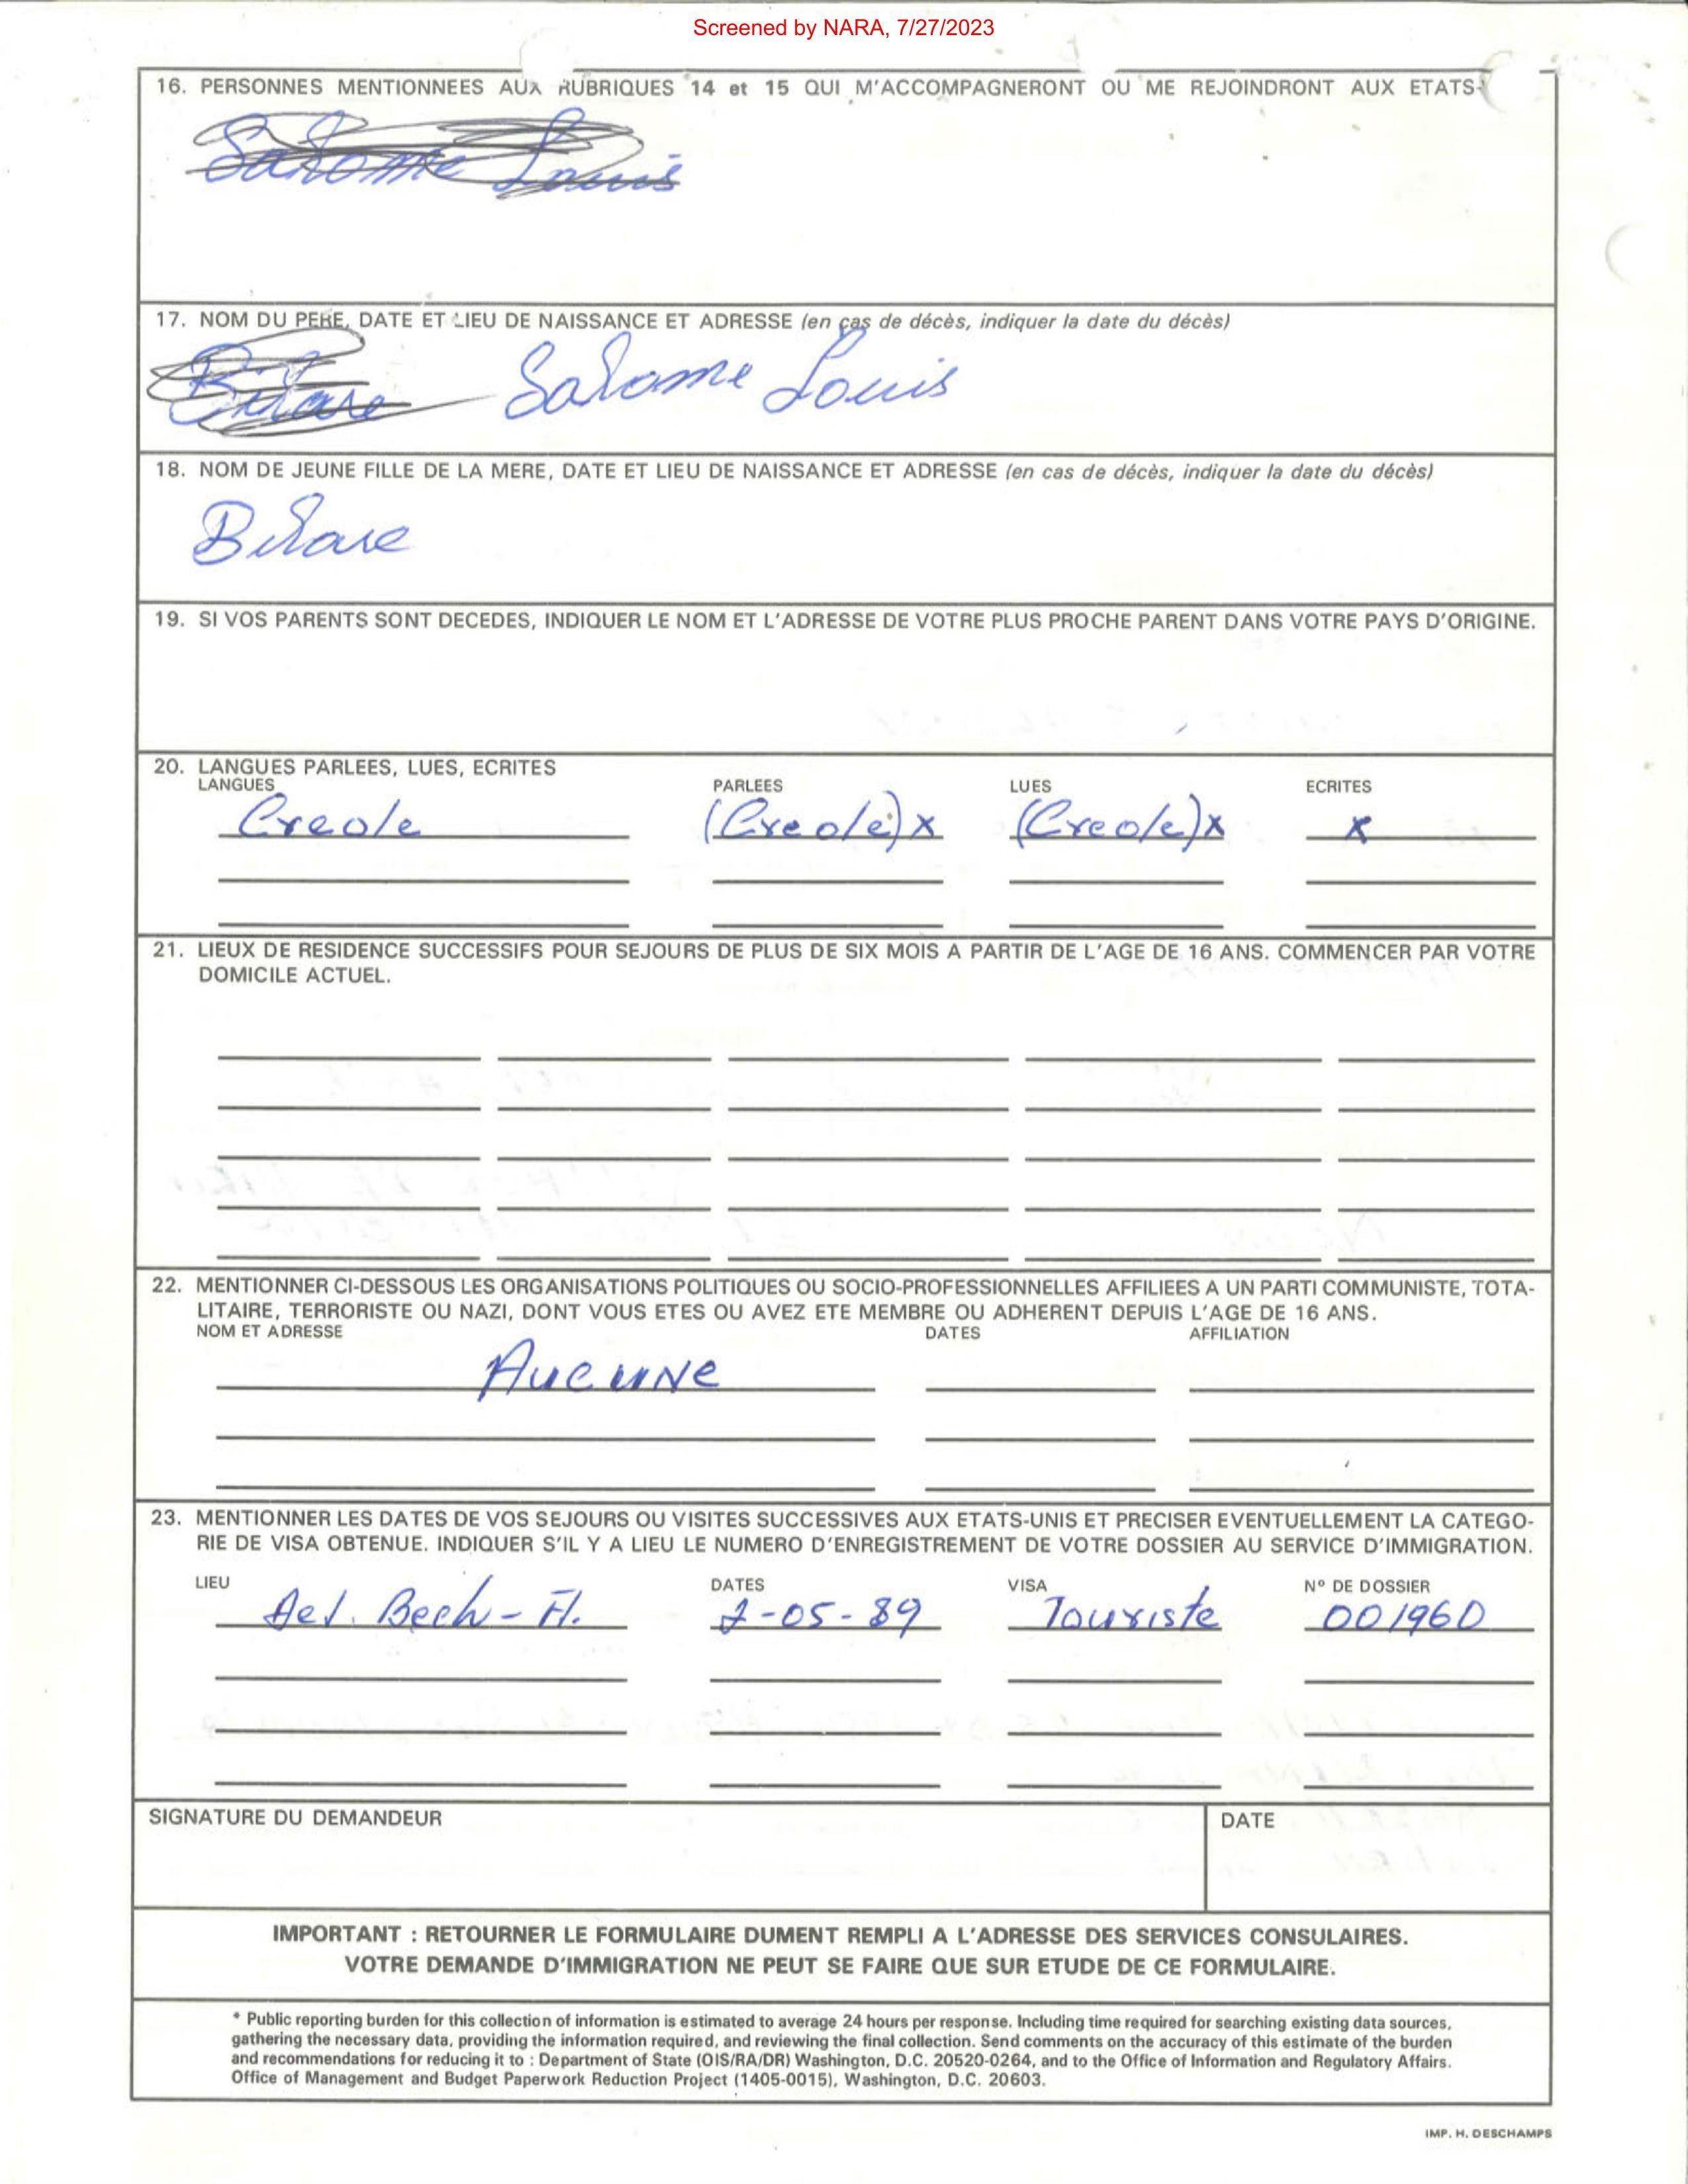 Screened by NARA, 7/27/2023
16. PERSONNES MENTIONNEES AUX RUBRIQUES 14 et 15 QUI M'ACCOMPAGNERONT OU ME REJOINDRONT AUX ETATS-
Salome Louis
17. NOM DU PERE, DATE ET LIEU DE NAISSANCE ET ADRESSE (en cas de décès, indiquer la date du décès)
Salome Louis
18. NOM DE JEUNE FILLE DE LA MERE, DATE ET LIEU DE NAISSANCE ET ADRESSE (en cas de décès, indiquer la date du décès)
19. SI VOS PARENTS SONT DECEDES, INDIQUER LE NOM ET L'ADRESSE DE VOTRE PLUS PROCHE PARENT DANS VOTRE PAYS D'ORIGINE.
20. LANGUES PARLEES, LUES, ECRITES
LANGUES PARLEES LUES ECRITES
Creole (Creole) x (Creole) x x
21. LIEUX DE RESIDENCE SUCCESSIFS POUR SEJOURS DE PLUS DE SIX MOIS A PARTIR DE L'AGE DE 16 ANS. COMMENCER PAR VOTRE
DOMICILE ACTUEL.
22. MENTIONNER CI-DESSOUS LES ORGANISATIONS POLITIQUES OU SOCIO-PROFESSIONNELLES AFFILIEES A UN PARTI COMMUNISTE, TOTA-
LITAIRE, TERRORISTE OU NAZI, DONT VOUS ETES OU AVEZ ETE MEMBRE OU ADHERENT DEPUIS L'AGE DE 16 ANS.
NOM ET ADRESSE DATES AFFILIATION
Aucune
23. MENTIONNER LES DATES DE VOS SEJOURS OU VISITES SUCCESSIVES AUX ETATS-UNIS ET PRECISER EVENTUELLEMENT LA CATEGO-
RIE DE VISA OBTENUE. INDIQUER S'IL Y A LIEU LE NUMERO D'ENREGISTREMENT DE VOTRE DOSSIER AU SERVICE D'IMMIGRATION.
LIEU DATES VISA Nº DE DOSSIER
Del. Bech - Fl. Touriste 001960
SIGNATURE DU DEMANDEUR DATE
IMPORTANT : RETOURNER LE FORMULAIRE DUMENT REMPLI A L'ADRESSE DES SERVICES CONSULAIRES.
VOTRE DEMANDE D'IMMIGRATION NE PEUT SE FAIRE QUE SUR ETUDE DE CE FORMULAIRE.
* Public reporting burden for this collection of information is estimated to average 24 hours per response. Including time required for searching existing data sources,
gathering the necessary data, providing the information required, and reviewing the final collection. Send comments on the accuracy of this estimate of the burden
and recommendations for reducing it to : Department of State (OIS/RA/DR) Washington, D.C. 20520-0264, and to the Office of Information and Regulatory Affairs.
Office of Management and Budget Paperwork Reduction Project (1405-0015), Washington, D.C. 20603.
IMP. H. DESCHAMPS